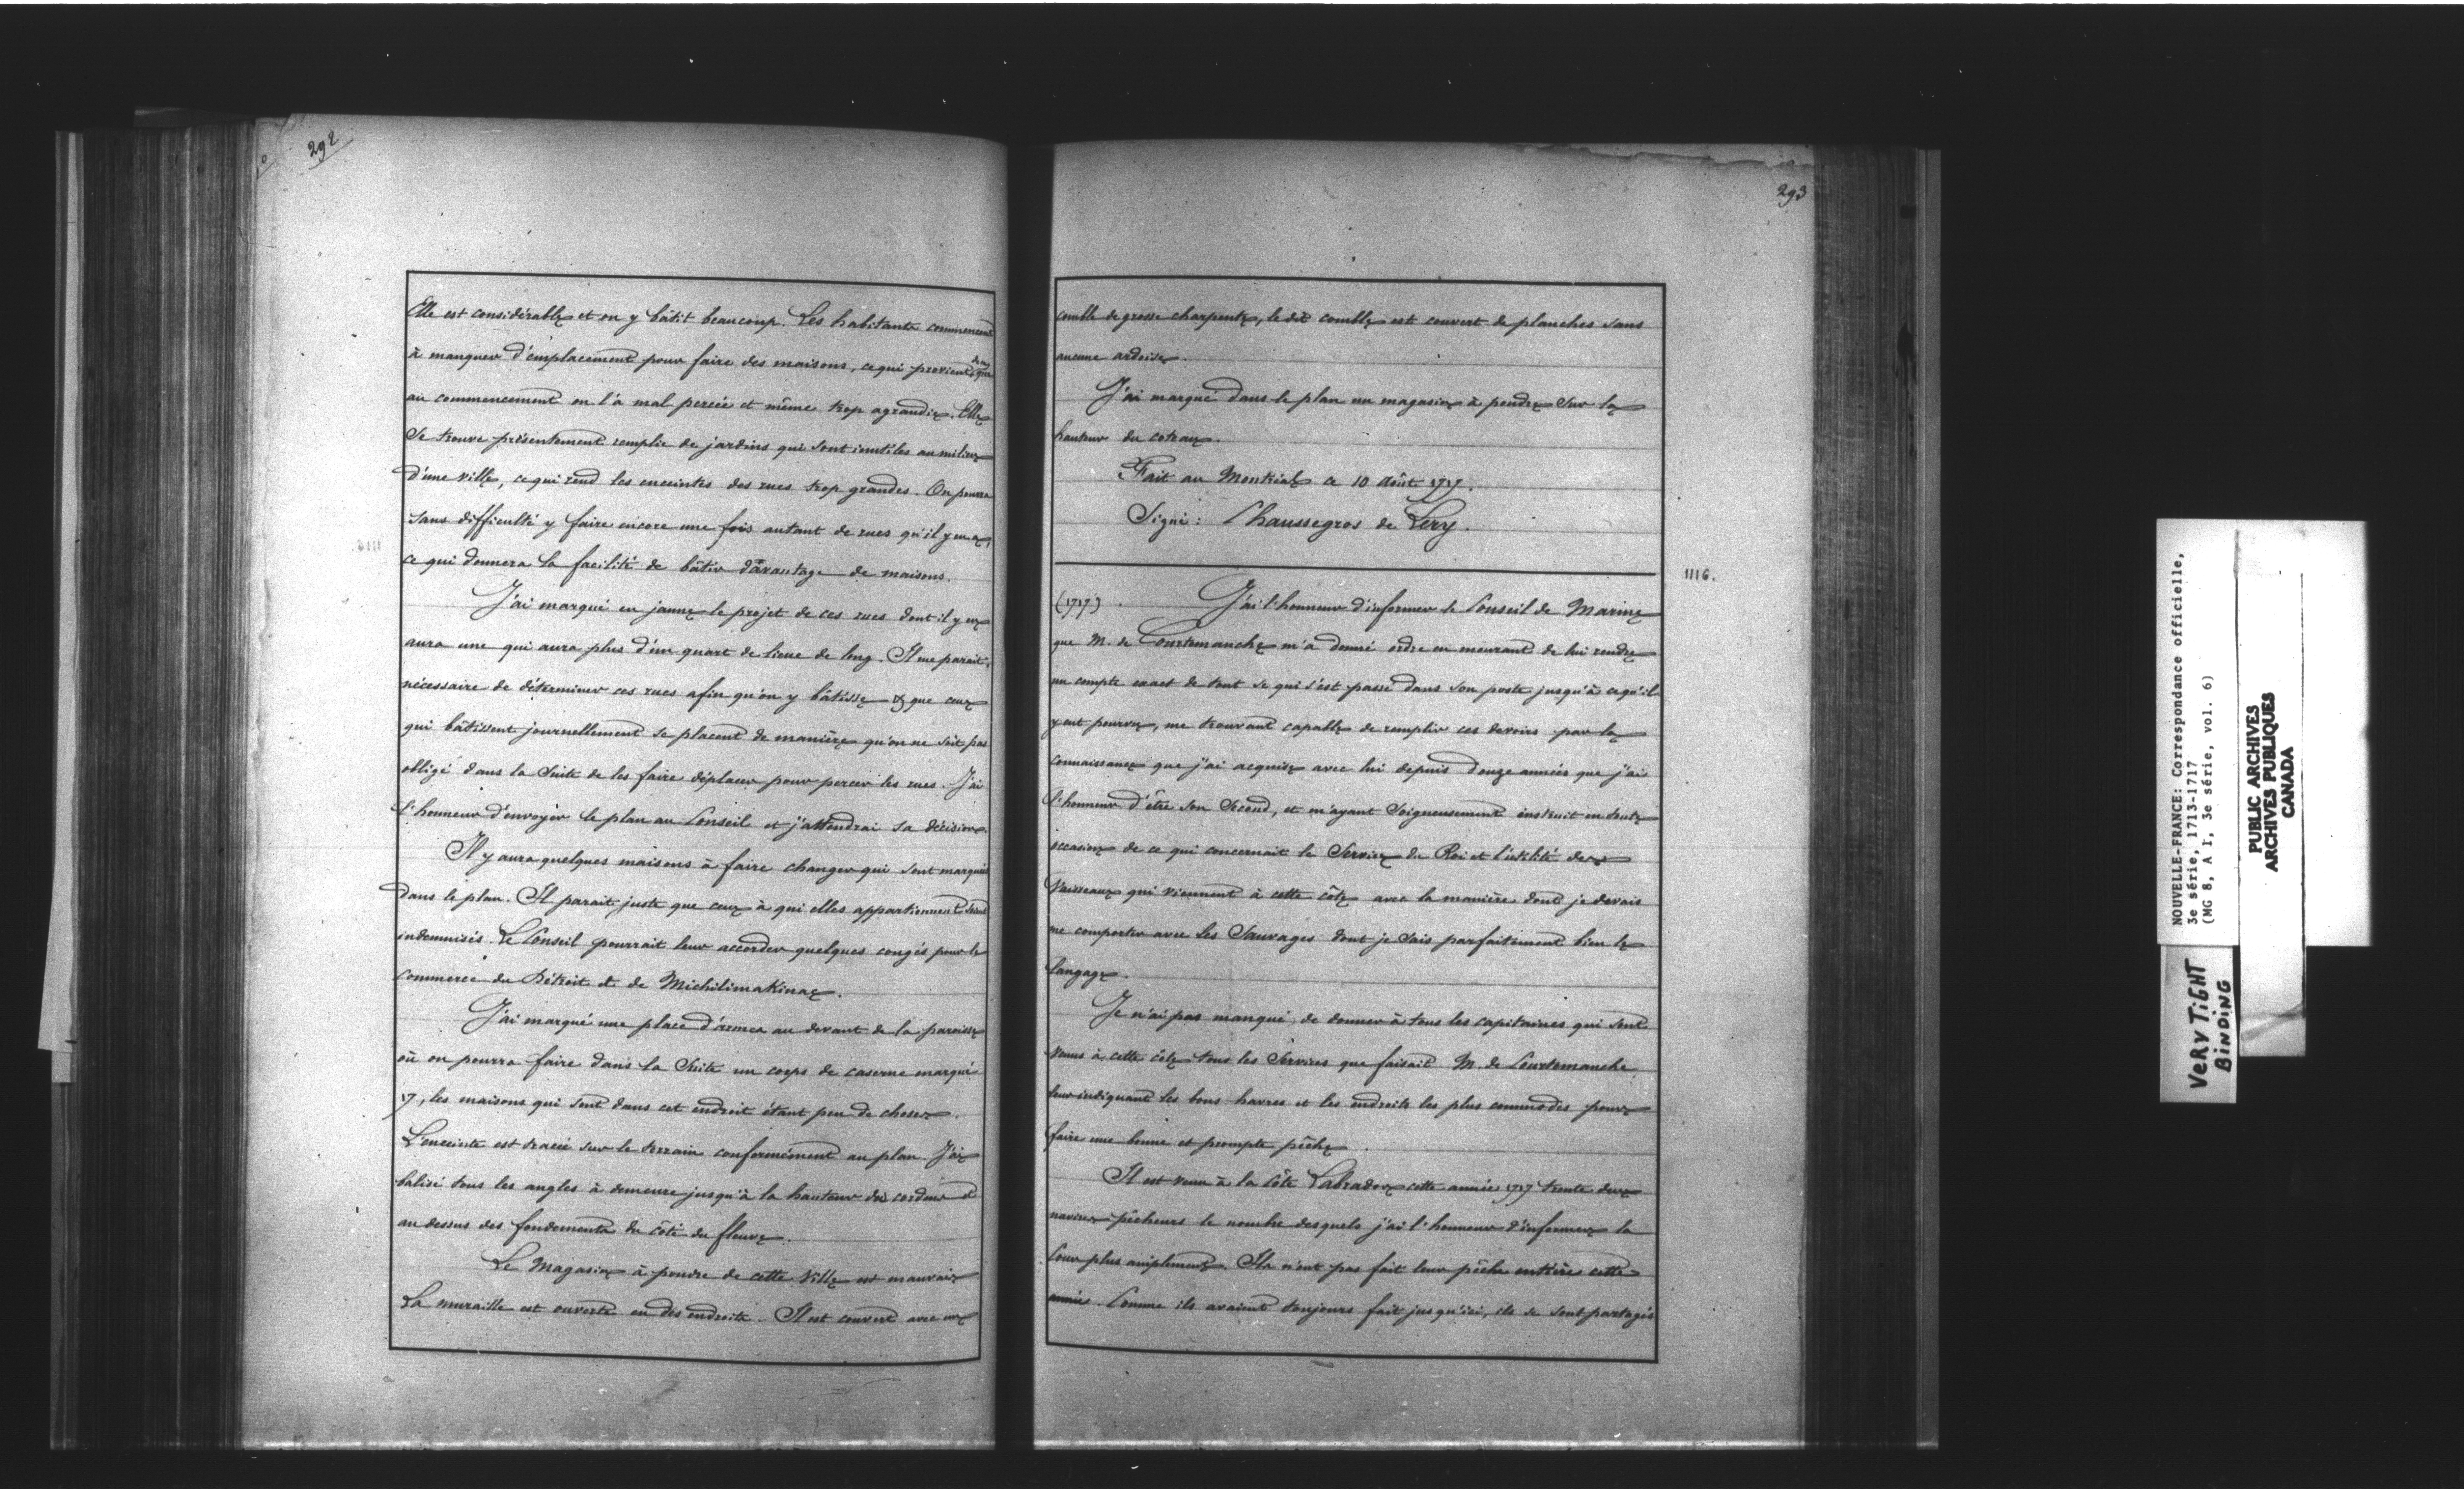 292
Elle est considérable et on y bâtit beaucoup. Les habitants commencent
à manquer d'emplacement pour faire des maisons, ce qui provient de ce que
au commencement on l'a mal percée et même trop agrandie. Elle
se trouve présentement remplie de jardins qui sont inutiles au milieu
d'une ville, ce qui rend les enceintes des rues trop grandes. On pourra
sans difficulté y faire encore une fois autant de rues qu'il y en a,
ce qui donnera la facilité de bâtir davantage de maisons.
J'ai marqué en jaune le projet de ces rues dont il y en
aura une qui aura plus d'un quart de lieue de long. Il me parait
nécessaire de déterminer ces rues afin qu'on y bâtisse & que ceux
qui bâtissent journellement se placent de manière qu'on ne soit pas
obligé dans la suite de les faire déplacer pour percer les rues. J'ai
l'honneur d'envoyer le plan au Conseil et j'attendrai sa décision.
Il y aura quelques maisons à faire changer qui sont marquées
dans le plan. Il parait juste que ceux à qui elles appartiennent soient
indemnisés. Le Conseil pourrait leur accorder quelques congés pour le
commerce du Détroit et de Michilimakinac.
J'ai marqué une place d'armes au devant de la paroisse
où on pourra faire dans la suite un corps de caserne marqué
17, les maisons qui sont dans cet endroit étant peu de chose.
L'enceinte est tracée sur le terrain conformément au plan. J'ai
balisé tous les angles à demeure jusqu'à la hauteur du cordon et
au dessus des fondements du côté du fleuve.
Le Magasin à poudre de cette Ville est mauvais
La muraille est ouverte en des endroits. Il est couvert avec un
293
comble de grosse charpente, le dit comble est couvert de planches sans
aucune ardoise.
J'ai marqué dans le plan un magasin à poudre sur la
hauteur du coteau.
Fait au Montréal ce 10 août 1717.
Signé: Chaussegros de Lery.
1116.
(1717) J'ai l'honneur d'informer le Conseil de Marine
que M. de Courtemanche m'a donné ordre en mourant de lui rendre
un compte exact de tout se qui s'est passé dans son poste jusqu'à ce qu'il
y eut pourvu, me trouvant capable de remplir ces devoirs par la
connaissance que j'ai acquise avec lui depuis douze années que j'ai
l'honneur d'être son Second, et m'ayant soigneusement instruit en toute
occasion de ce qui concernait le Service du Roi et l'utilité des
Vaisseaux qui viennent à cette côte avec la manière dont je devais
me comporter avec les Sauvages dont je sais parfaitement bien le
langage.
Je n'ai pas manqué de donner à tous les capitaines qui sont
venus à cette côte tous les Services que faisait M. de Courtemanche
leur indiquant les bons havres et les endroits les plus commodes pour
faire une bonne et prompte pêche.
Il est venu à la Côte Labrador cette année 1717 trente deux
navires pêcheurs le nombre desquels j'ai l'honneur d'informer la
Cour plus amplement. Ils n'ont pas fait leur pêche entière cette
année. Comme ils avaient toujours fait jusqu'ici, ils se sont partagés
NOUVELLE-FRANCE: Correspondance officielle,
3e série, 1713-1717
(MG 8, A I, 3e série, vol. 6)
PUBLIC ARCHIVES
ARCHIVES PUBLIQUES
CANADA
VERY TIGHT
BINDING